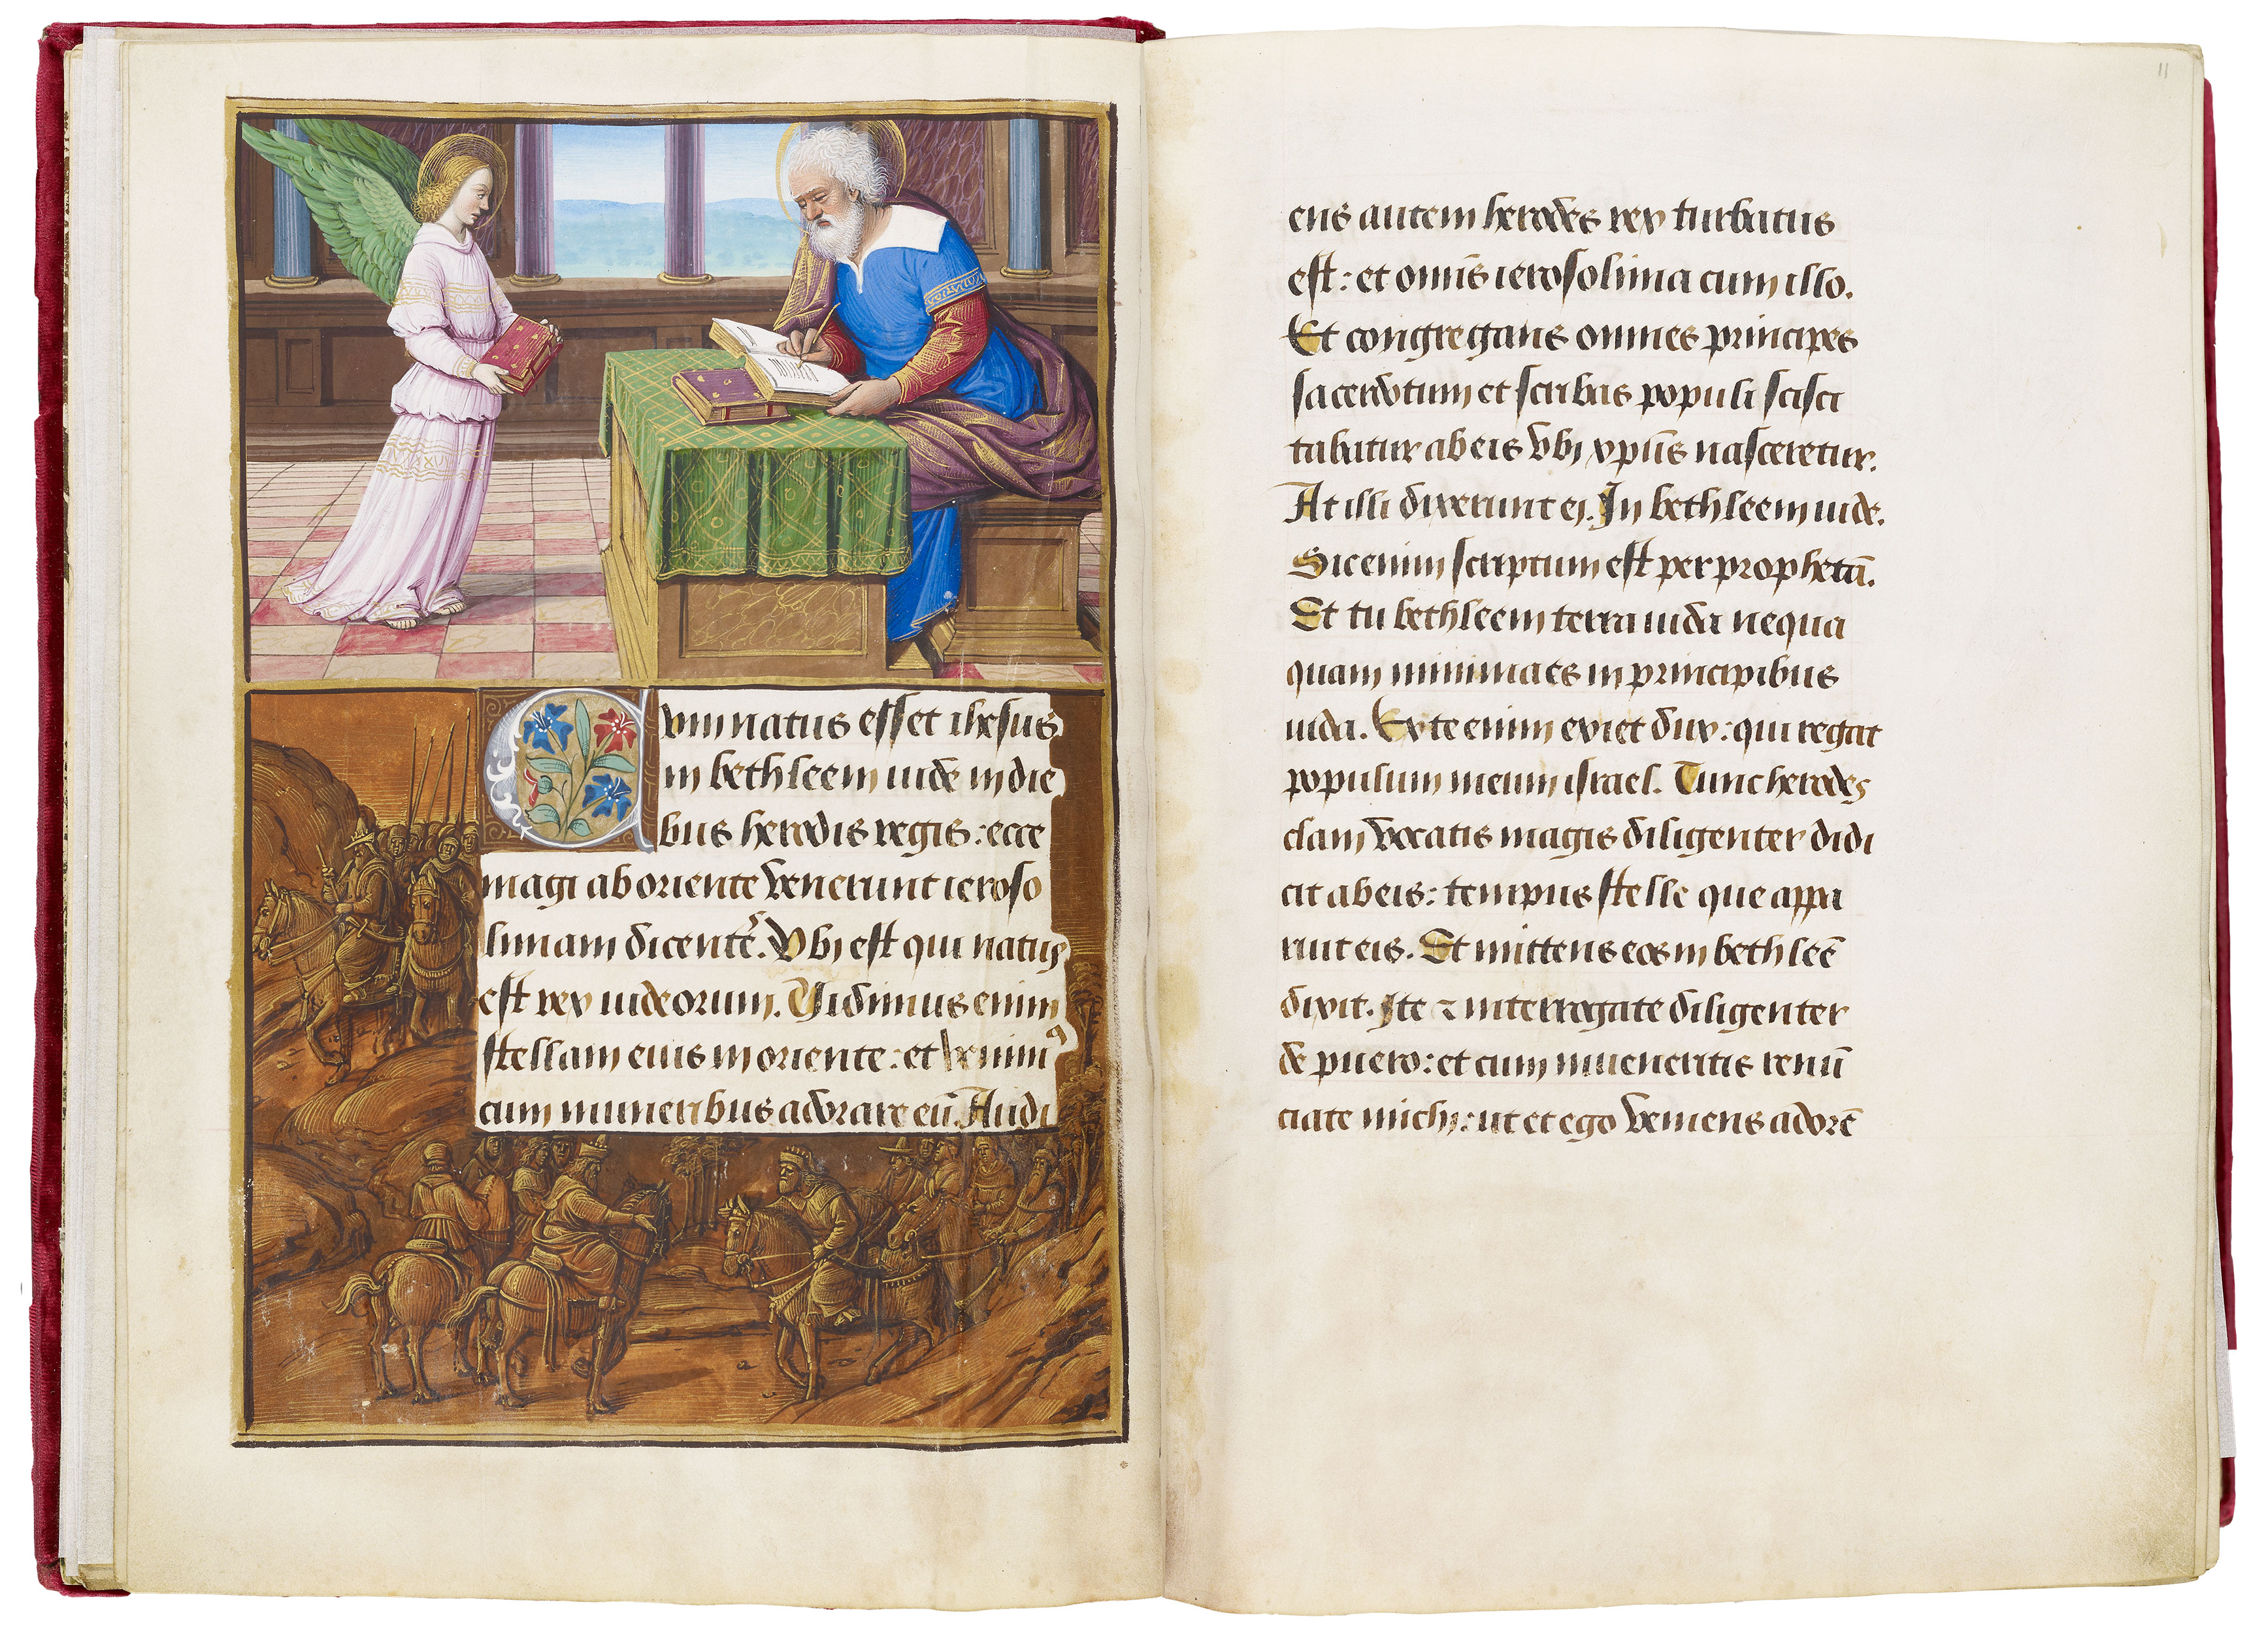 Cum natus esset ihesus
in bethleem iude in die
bus herodis regis: ecce
magi ab oriente venerunt ieroso
limam dicentẽs. Vbi est qui natus
est rex iudeorum. Vidimus enim
stellam eius in oriente: et venimꝰ
cum muneribus adorare eū. Audi
11
ens autem herodes rex turbatus
est: et omīs ierosolima cum illo.
Et congregans omnes principes
sacerdotum et scribas populi scisci
tabatur ab eis vbi xpūs nasceretur.
At illi dixerunt ei. In bethleem iude.
Sic enim scriptum est per prophetā.
Et tu bethleem terra iuda nequa
quam minima es in principibus
iuda. Ex te enim exiet dux: qui regat
populum meum israel. Tunc herodes
clam vocatis magis diligenter didi
cit ab eis: tempus stelle que appa
ruit eis. Et mittens eos in bethleē
dixit. Ite ⁊ interrogate diligenter
de puero: et cum inueneritis renū
ciate michi: ut et ego veniens adorē